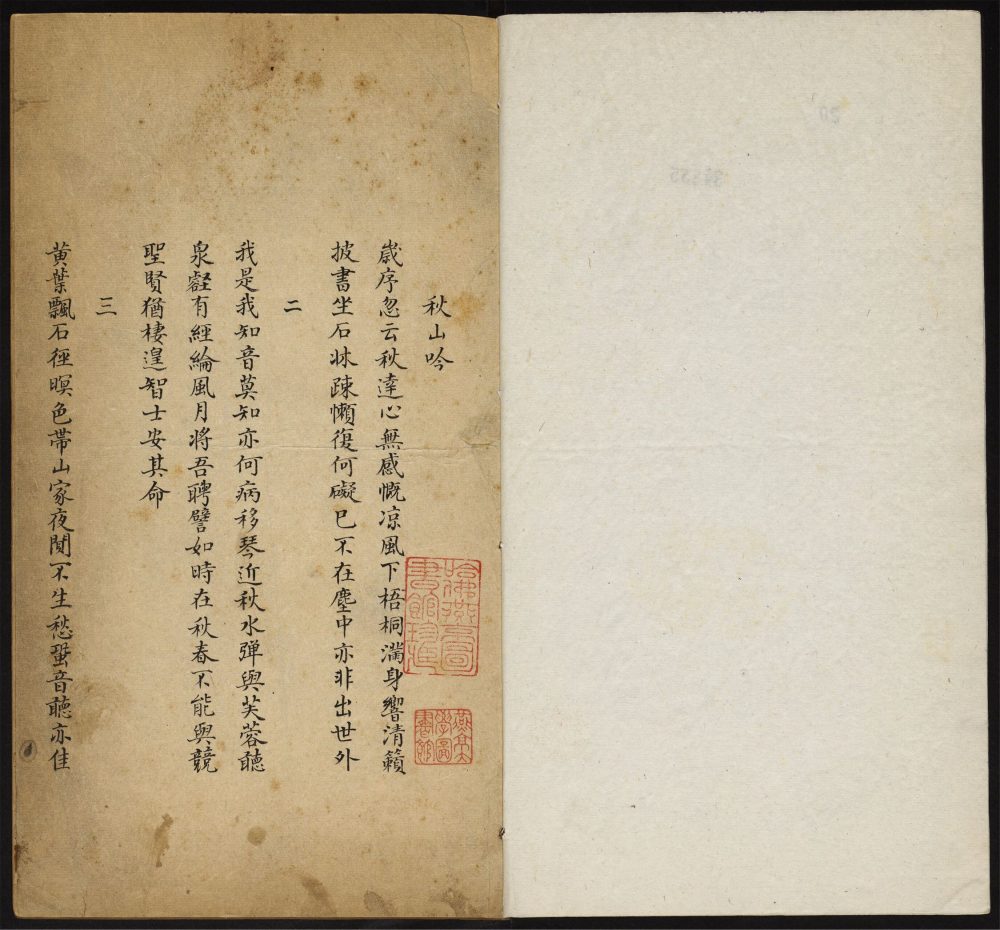 秋山吟
歲序忽云秋達心無感慨凉風下梧桐滿身響清籟
披書坐石牀疎懶復何礙已不在塵中亦非出世外
二
我是我知音莫知亦何病移琴近秋水彈與芙蓉聽
泉壑有經綸風月將吾聘譬如時在秋春不能與競
聖賢猶棲遑智士安其命
三
黃葉飄石徑暝色帶山家夜閴不生愁蛩音聽亦佳
哈佛燕京圖書館珍藏